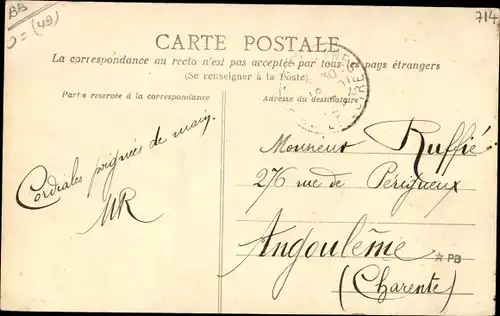 BB
(49)
714
CARTE POSTALE
La correspondance au recto n'est pas acceptée par tous les pays étrangers
(Se renseigner à la Poste)
Partie réservée à la correspondance
Adresse du destinataire
Cordiales poignées de main.
MR
Monsieur Ruffié
276 rue de Périgueux
Angoulême
(Charente)
* PB